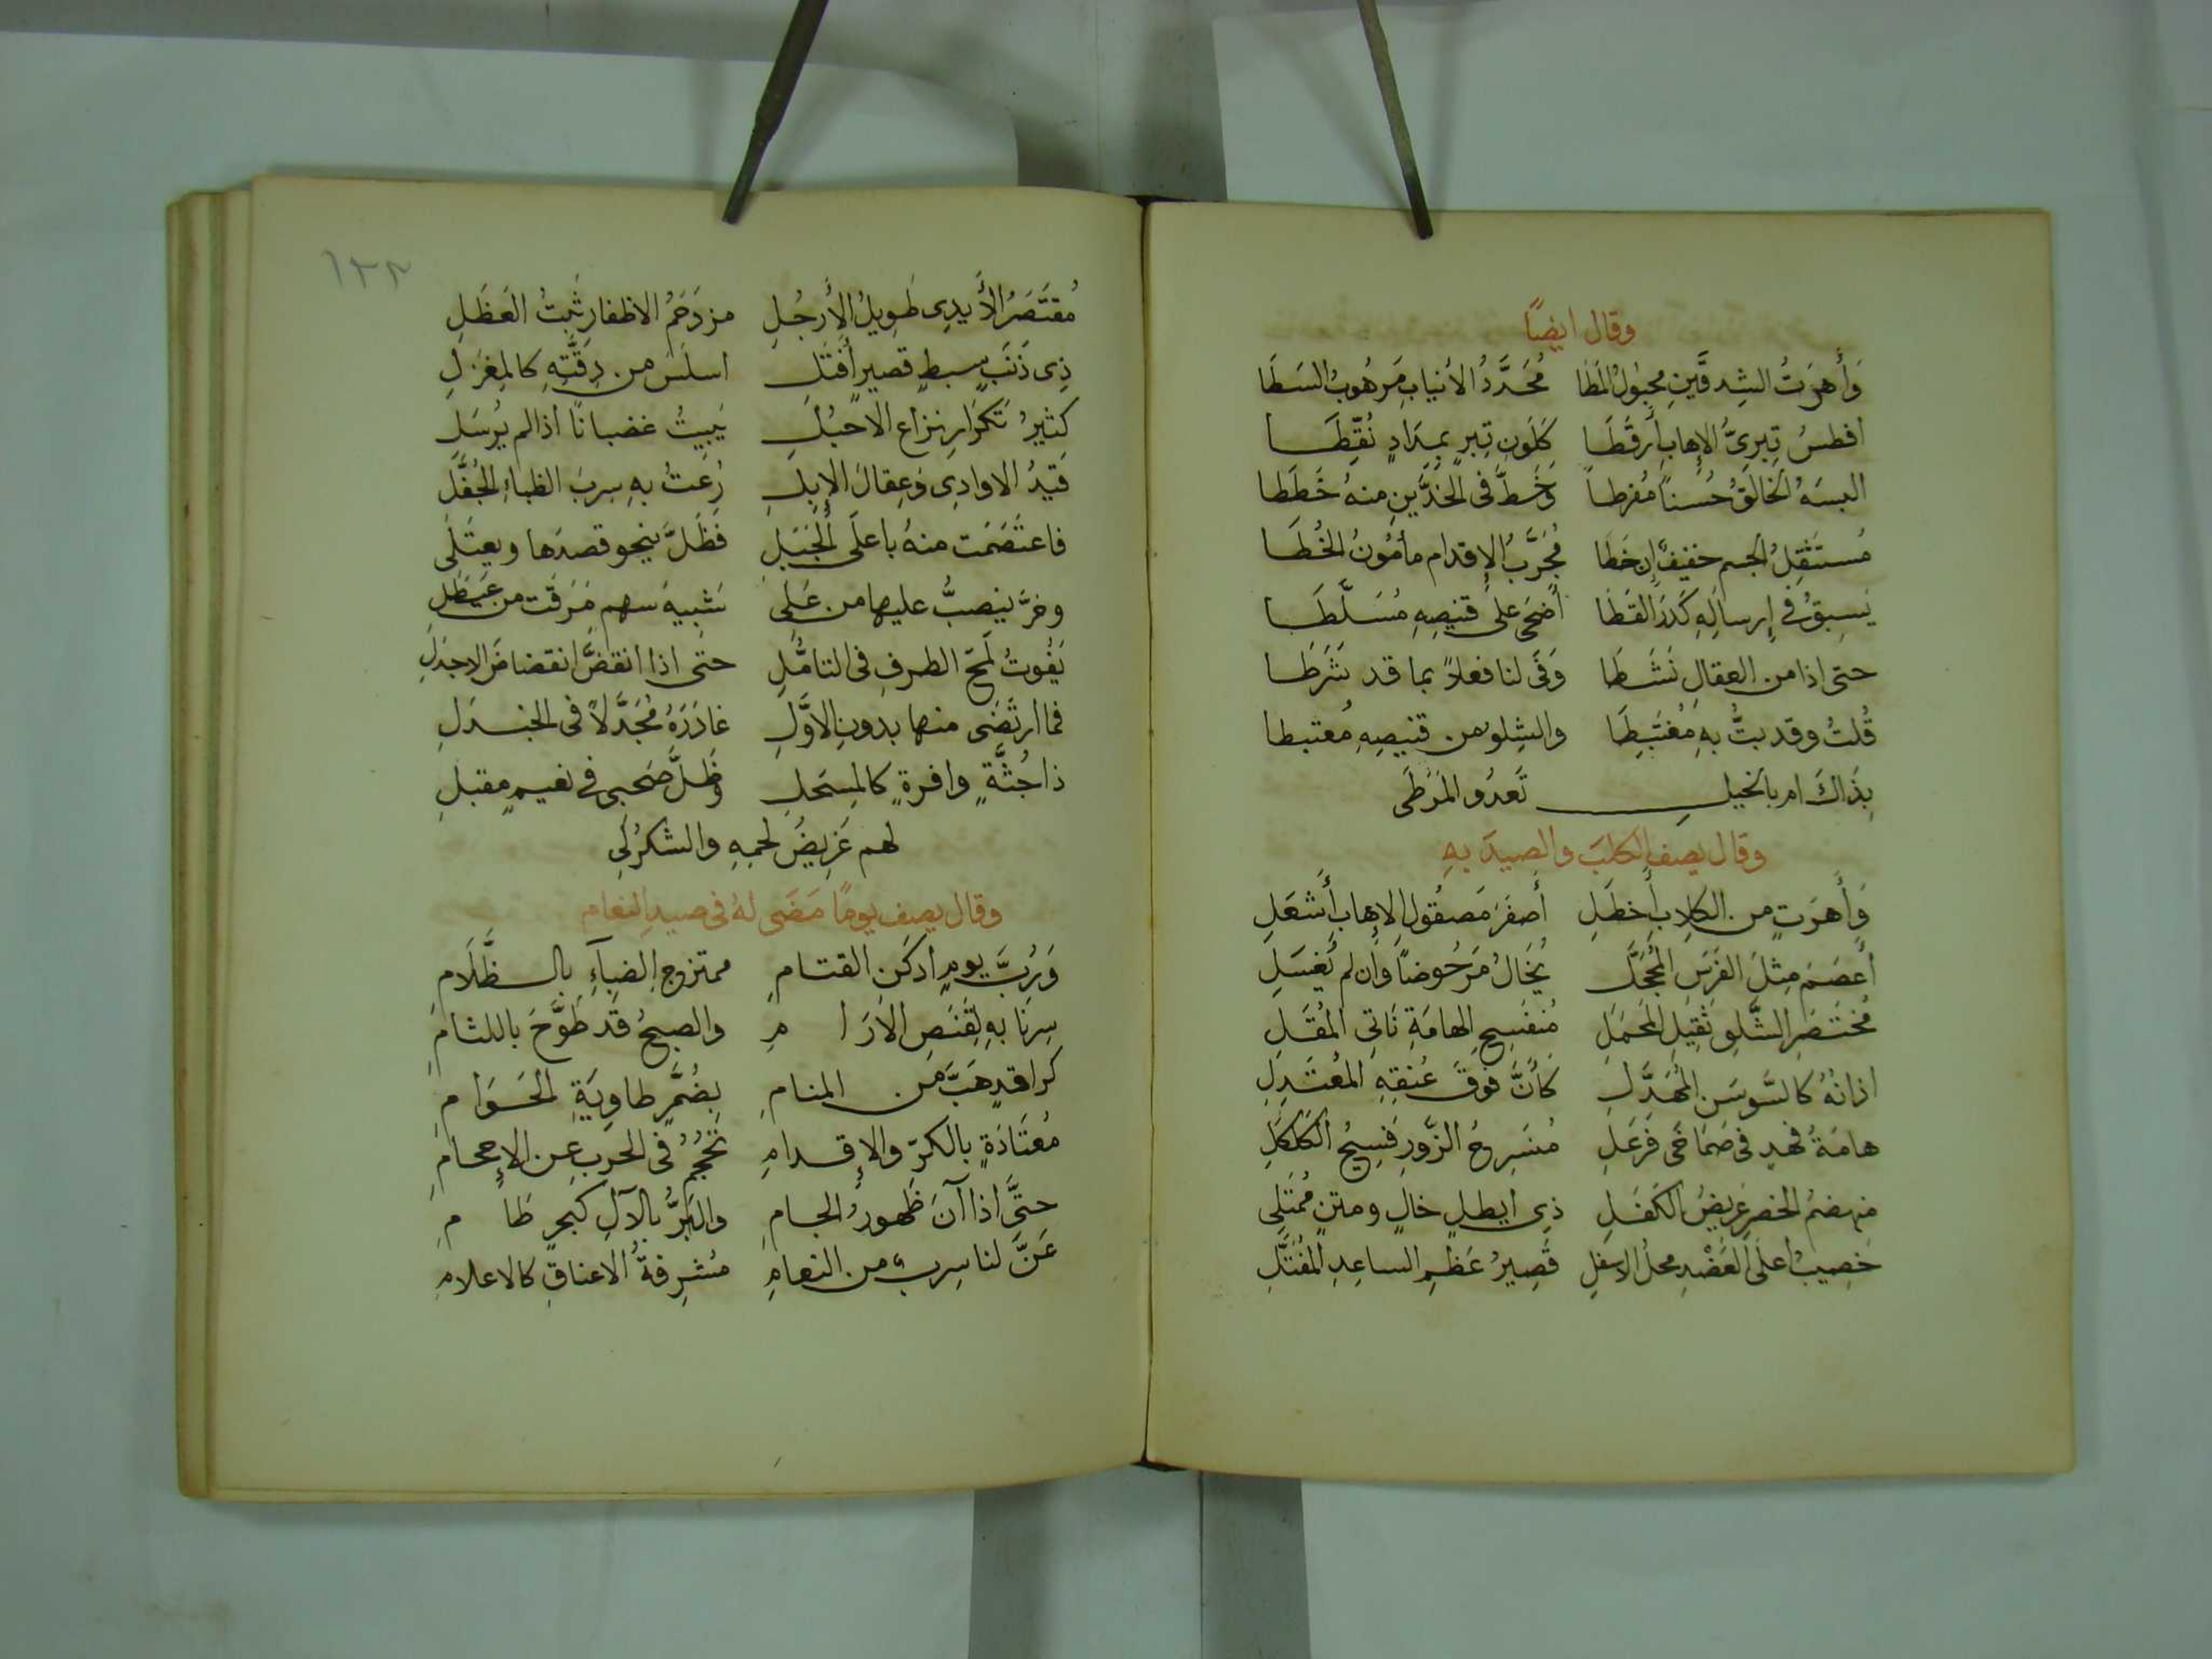 وقال ايضًا
وَأَهرَتُ الشِدقَّينِ مجبُولُ المَطَا مُحَدَّدُ الأنيابِ مَرهُوبُ السَطَا
افطسُ تِبرىُّ الإهابِ أرقَطَا كَلَونِ تِبرٍ بمِدَادٍ نُقِّطَا
البسَهُ الخالقُ حُسناً مُفرطاً وَخَطَّ فى الخدَّينِ منهُ خَطَطا
مُستَثقِلُ الجسم خفيفٌ إن خَطَا مُجرَّبُ الإقدام مأمُونُ الخُطَا
يَسبِقُ فى إرسالِهِ كَدَرَ القَطَا أضحَى على قنيصِهِ مُسَلَّطَا
حتى اذا من العقالِ نَشَطَا وَفَى لنا فعلاً بما قد شَرَطَا
قُلتُ وقد بتُّ بهِ مُغتَبِطَا والشِلو من قنيصِهِ مُعتبطا
بِذَاكَ ام بالخيلِ تَعدُو المَرَطَى
وقال يصف الكلبَ والصيدَ بهِ
وَأَهرَتٍ من الكلابِ أخطَلِ أصفَرَ مَصقُولِ الإهابِ أشعَلِ
أعصَمَ مِثلَ الفَرَسِ المُحجَّلِ يُخَالُ مَرحُوضاً وان لم يُغسَلِ
مُختَصَرِ الشِّلوِ ثقيلِ المَحمَلِ مُنفَسِحِ الهامَةِ نَاتِى المُقَلِ
اذانُهُ كالسَّوسَنِ المُهَدَّلِ كأنَّ فوقَ عُنقِهِ المُعتَدِلِ
هامَةُ فهدٍ فى صَمَاخَى فَرعَلِ مُنسَرِحُ الزَّورِ فَسِيحُ الكَلكَلِ
منهضمُ الخصرِ عَريضُ الكَفَلِ ذِى ايطلٍ خالٍ ومتنٍ مُمتَلِى
خَصِيبُ اعلَى العَضْدِ محلُ الاسفلِ قَصِيرُ عَظمِ الساعِدِ المُفَتَّلِ
١٢٣
مُقتَصَرُ الأَيدِى طَوِيلُ الأَرجُلِ مزدَحَمُ الاظفارِ ثَبتُ العَظَلِ
ذِى ذَنَبٍ سبطٍ قصيرٍ أفتَلِ اسلَسَ من دِقَّتِهِ كالمِغزَلِ
كثيرُ تَكرَارِ نزاع الاحبُلِ يَبِيتُ غضبانًا اذا لم يُرسَلِ
قَيدُ الاوادِى وَعِقالَ الإبِلِ رُعتُ بهِ سِربَ الظباءِ الجُفَّلِ
فاعتَصَمَت منهُ باعلَى الجَبَلِ فظَلَّ ينحو قصدَها ويعتَلى
وخرَّ ينصبُّ عليها من عَلِى شبيهَ سهمٍ مَرَقَت من عَيطَلِ
يَفُوتُ لَمحَ الطرفِ فى التامُّلِ حتى اذا انقضَّ انقضاضَ الاجدَلِ
فما ارتَضَى منها بدونِ الاوَّلِ غادَرَهُ مُجَدَّلاً فى الجندَلِ
ذا جُثَّةٍ وافرةٍ كالمِسحَلِ وظلَّ صَحبى فى نعيمٍ مقبلِ
لهم غَرِيضُ لحمِهِ والشكرُ لى
وقال يصف يومًا مَضَى لهُ فى صيدِ النعام
وَرُبَّ يومٍ ادكَنِ القتامِ ممتزج الضيآءِ بالظَّلَامِ
سِرنَا بهِ لِقَنَصِ الارَامِ والصبحُ قد طَوَّحَ باللثامِ
كراقدٍ هَبَّ من المنامِ بِضُمَّرٍ طاوِيَةِ الحَوَامِ
مُعتَادَةٍ بالكرِّ والإقدامِ تَحجُمُ فى الحربِ عن الإحجامِ
حتَّى اذا آنَ ظهورُ الجامِ والبَرُّ بالآلِ كبحرٍ طَامِ
عَنَّ لنا سِربٌ من النعامِ مُشرِفةُ الاعناقِ كالاعلامِ